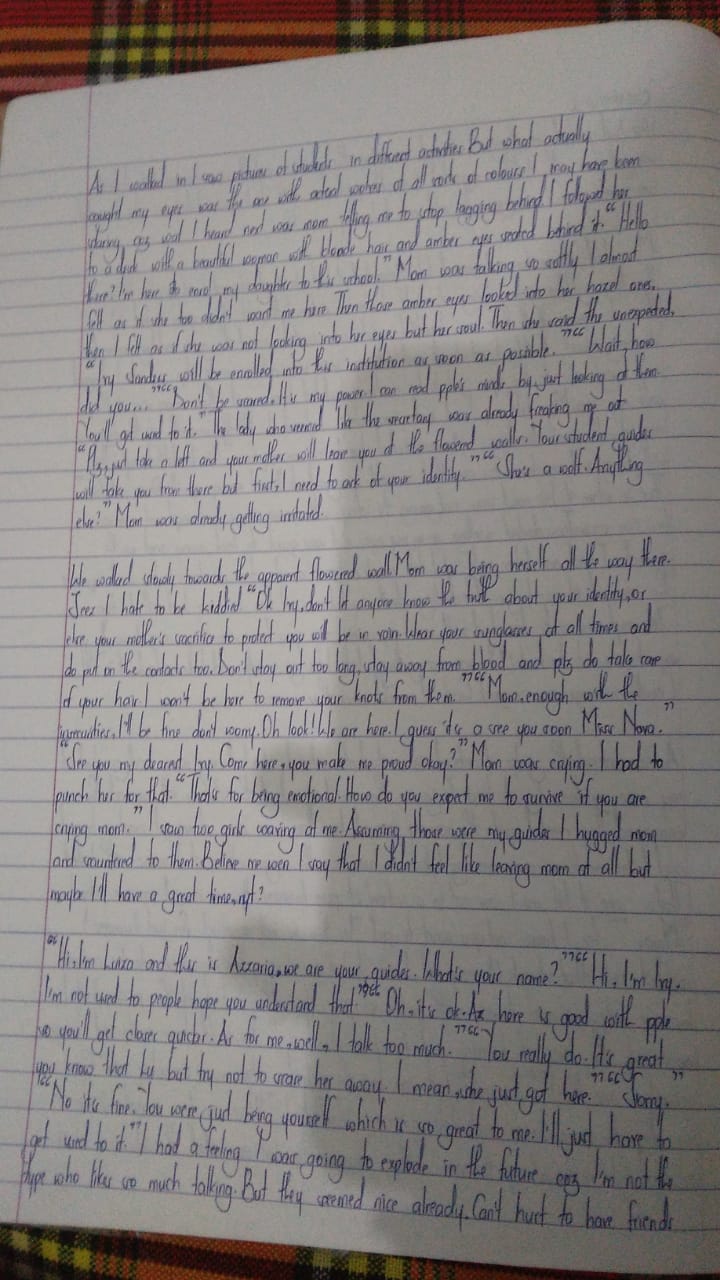 As I walked in I saw pictures of students in different activities. But what actually
caught my eyes was the one with actual wolves of all sorts of colours. I may have been
staring, coz wat I heard next was mom telling me to stop lagging behind. I followed her
to a desk with a beautiful woman with blonde hair and amber eyes seated behind it. "Hello
there? I'm here to enrol my daughter to this school." Mom was talking so softly I almost
felt as if she too didn't want me here. Then those amber eyes looked into her hazel ones,
then I felt as if she was not looking into her eyes but her soul. Then she said the unexpected,
"Ivy Sanders will be enrolled into this institution as soon as possible." "Wait, how
did you..." "Don't be scared. It is my power. I can read pple's minds by just looking at them.
You'll get used to it." The lady who seemed like the secretary was already freaking me out.
"Plz, just take a left and your mother will leave you at the flowered walls. Your student guides
will take you from there but first, I need to ask of your identity." "She's a wolf. Anything
else?" Mom was already getting irritated.
We walked slowly towards the apparent flowered wall. Mom was being herself all the way there.
Jeez I hate to be kiddied. "Ok Ivy, don't let anyone know the truth about your identity, or
else your mother's sacrifice to protect you will be in vain. Wear your sunglasses at all times and
do put on the contacts too. Don't stay out too long, stay away from blood and plz do take care
of your hair. I won't be here to remove your knots from them." "Mom, enough with the
I'll be fine don't worry. Oh look! We are here. I guess it's a see you soon Miss Nova."
"See you my dearest Ivy. Come here, you make me proud okay?" Mom was crying. I had to
punch her for that. "That's for being emotional. How do you expect me to survive if you are
crying mom." I saw two girls waving at me. Assuming those were my guides I hugged mom
and sauntered to them. Believe me wen I say that I didn't feel like leaving mom at all but
maybe I'll have a great time, ryt?
"Hi, I'm Luiza and this is Azzaria, we are your guides. What's your name?" "Hi, I'm Ivy.
I'm not used to people hope you understand that" "Oh, it's ok. Az here is good with pple
so you'll get closer quicker. As for me, well, I talk too much." "You really do. It's great
you know that Lu but try not to scare her away. I mean, she just got here." "Sorry."
"No its fine. You were just being yourself which is so great to me. I'll just have to
get used to it." I had a feeling I was going to explode in the future coz I'm not the
type who likes so much talking. But they seemed nice already. Can't hurt to have friends